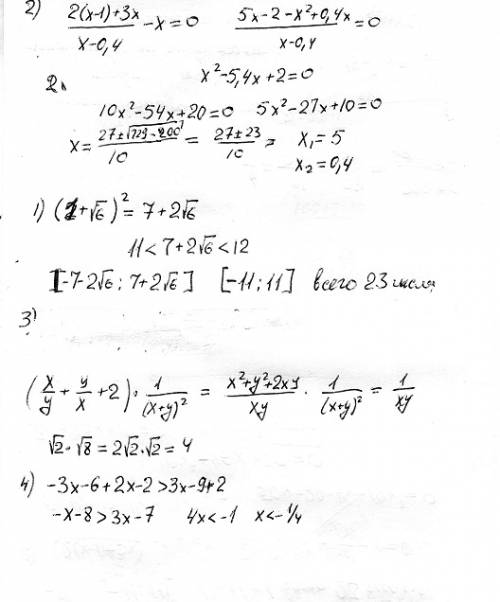 2) (2(x-1)+3x)/(x-0,4) - x = 0    (5x-2-x²+0,4x)/(x-0,4) = 0
x²-5,4x+2=0
2.
10x²-54x+20=0    5x²-27x+10=0
x = (27±√(729-200))/10 = (27±23)/10 =    x₁=5
x₂=0,4
1) (1+√6)² = 7+2√6
11<7+2√6<12
[-7-2√6; 7+2√6]    [-11; 11] всего 23 числа
3)
(x/y + y/x + 2) · 1/(x+y)² = (x²+y²+2xy)/xy · 1/(x+y)² = 1/xy
√2·√8 = 2√2·√2 = 4
4) -3x-6+2x-2>3x-9+2
-x-8>3x-7    4x<-1    x<-1/4